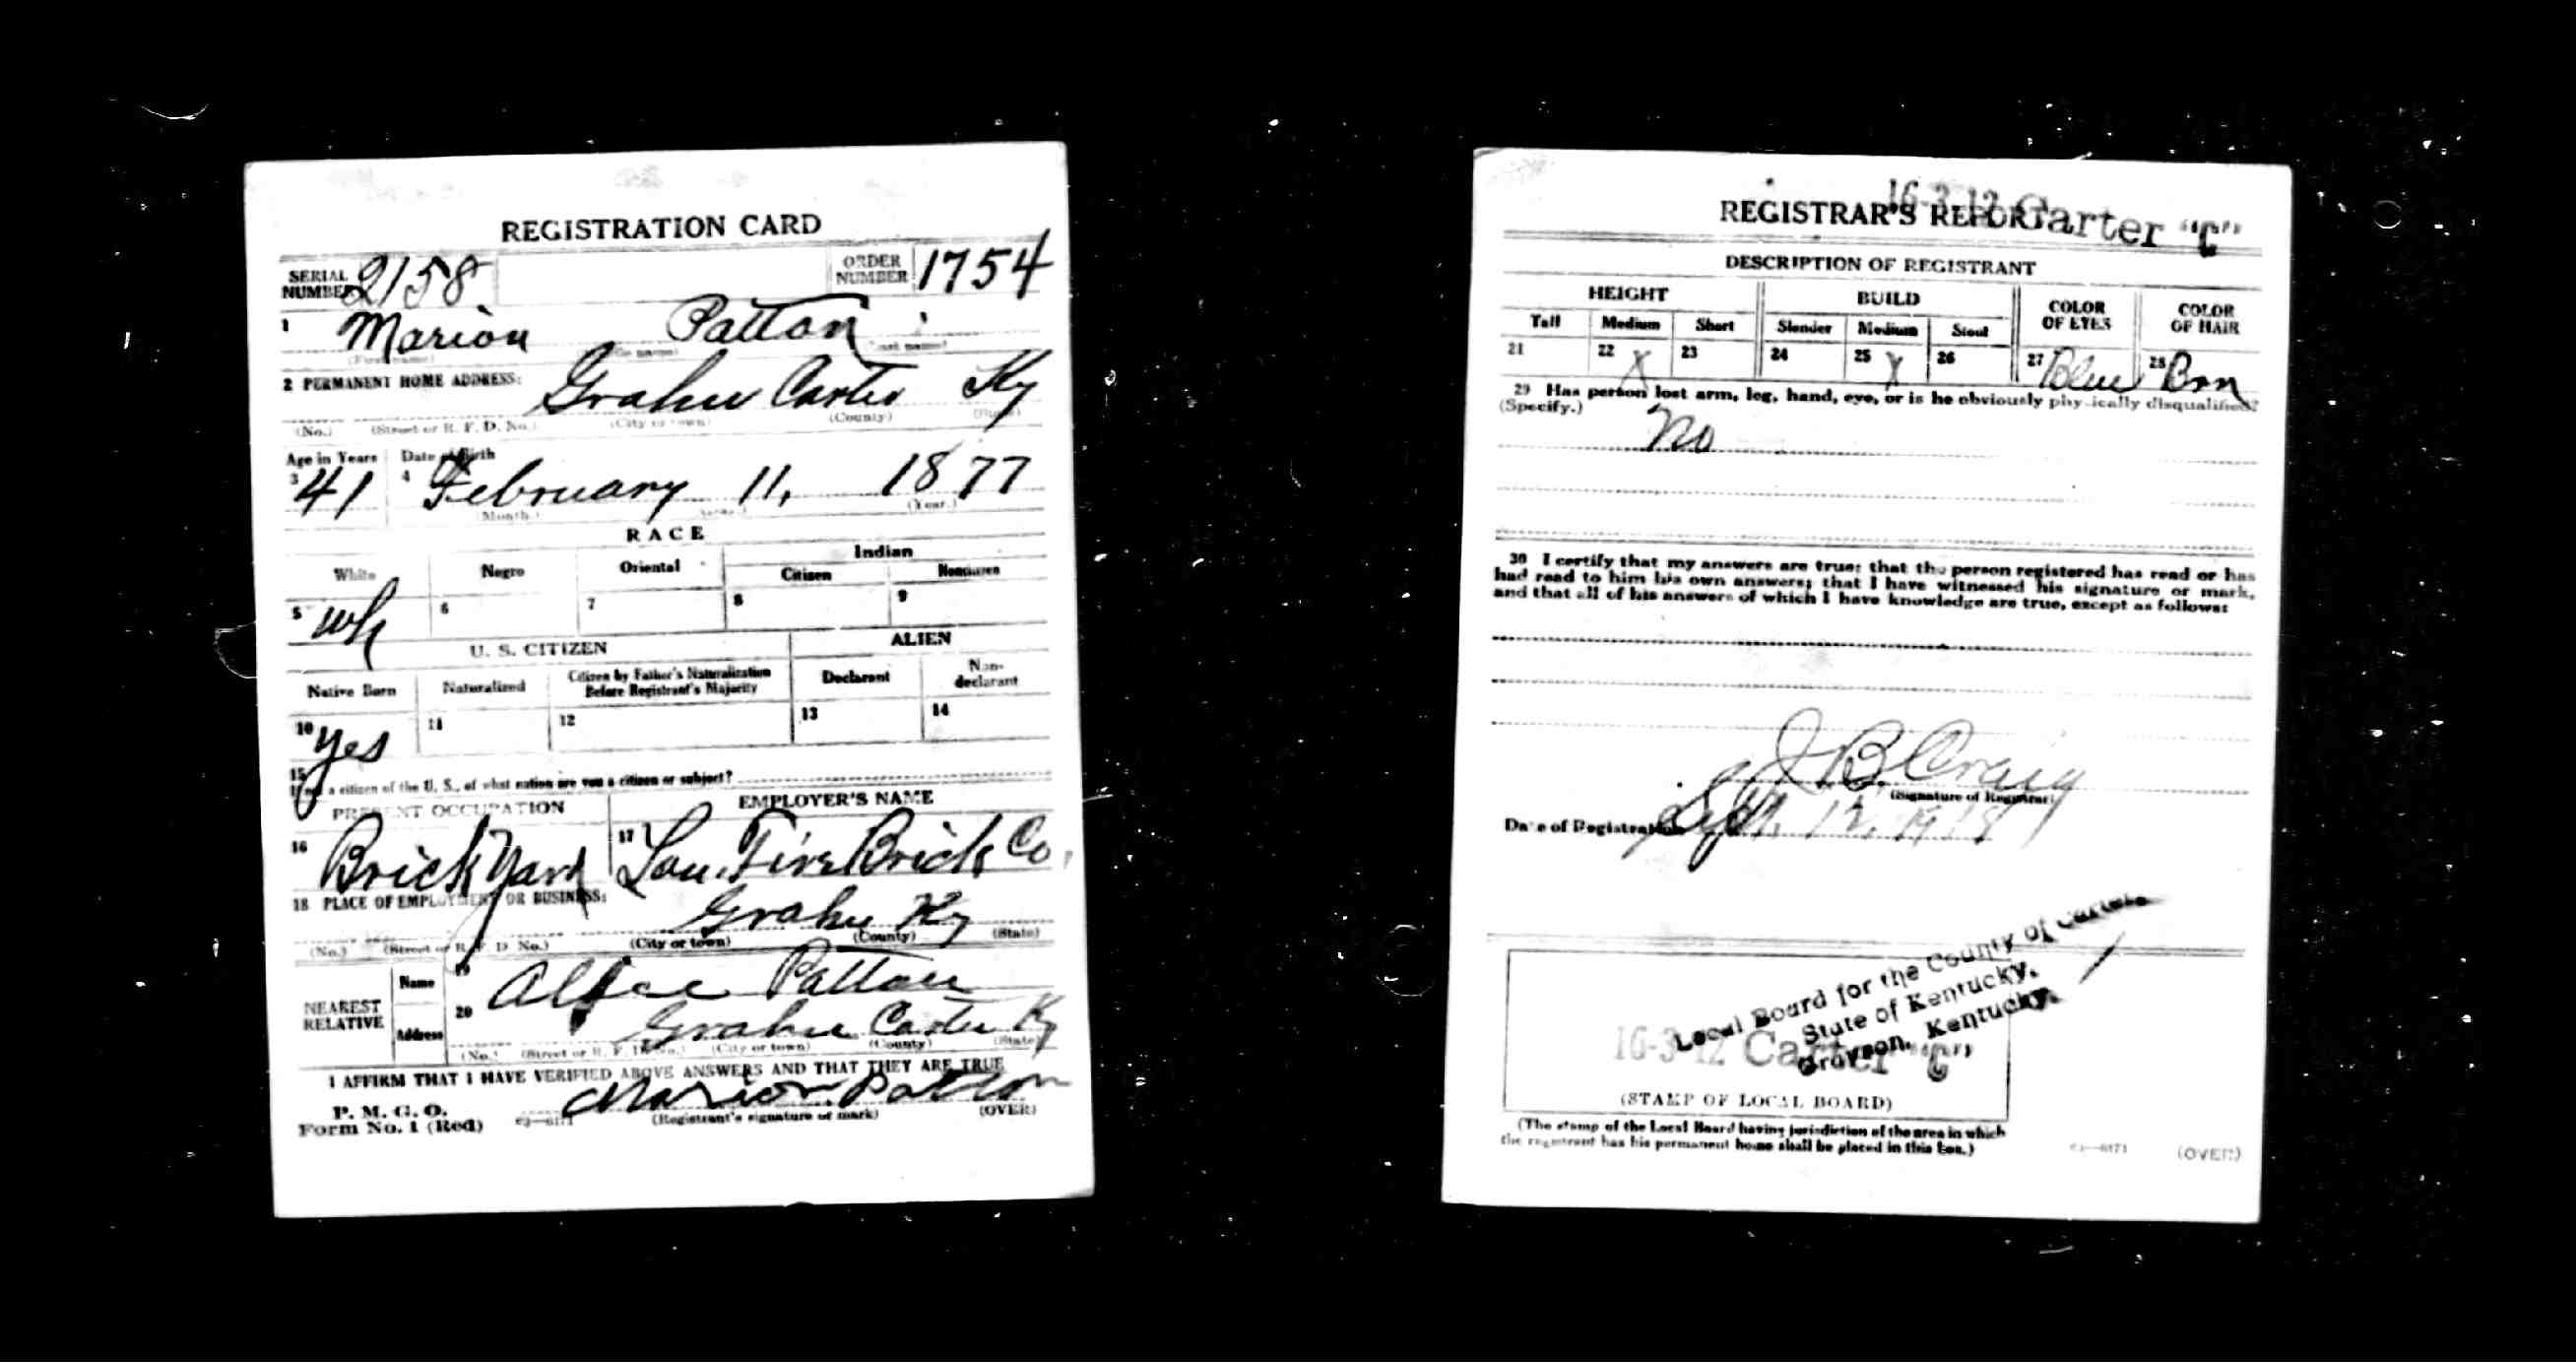 REGISTRATION CARD
SERIAL NUMBER 2158 ORDER NUMBER 1754
1 Marion Patton
(First name) (Last name)
2 PERMANENT HOME ADDRESS: Grahn Carter Ky
(No.) (Street or R. F. D. No.) (City or town) (County) (State)
Age in Years Date of Birth
3 41 4 February 11, 1877
(Month.) (Year.)
RACE
White Negro Oriental Indian
Citizen Noncitizen
5 Wh 6 7 8 9
U. S. CITIZEN ALIEN
Native Born Naturalized Citizen by Father's Naturalization Before Registrant's Majority Declarant Non-declarant
10 Yes 11 12 13 14
15 If not a citizen of the U. S., of what nation are you a citizen or subject?
PRESENT OCCUPATION EMPLOYER'S NAME
16 Brick Yard 17 Lou. Fire Brick Co.
18 PLACE OF EMPLOYMENT OR BUSINESS:
Grahn Ky
(No.) (Street or R. F. D. No.) (City or town) (County) (State)
NEAREST RELATIVE Name 19 Alice Patton
Address 20 Grahn Carter Ky
(No.) (Street or R. F. D. No.) (City or town) (County) (State)
I AFFIRM THAT I HAVE VERIFIED ABOVE ANSWERS AND THAT THEY ARE TRUE
P. M. G. O.
Form No. 1 (Red) Marion Patton
(Registrant's signature or mark) (OVER)
16-3-12 Carter "C"
REGISTRAR'S REPORT
DESCRIPTION OF REGISTRANT
HEIGHT BUILD COLOR OF EYES COLOR OF HAIR
Tall Medium Short Slender Medium Stout
21 22 X 23 24 25 X 26 27 Blue 28 Brn
29 Has person lost arm, leg, hand, eye, or is he obviously physically disqualified?
(Specify.)
No
30 I certify that my answers are true; that the person registered has read or has
had read to him his own answers; that I have witnessed his signature or mark,
and that all of his answers of which I have knowledge are true, except as follows:
J B Craig
(Signature of Registrar)
Date of Registration Sept. 12, 1918
Local Board for the County of Carter,
State of Kentucky,
Grayson, Kentucky.
16-3-12 Carter "C"
(STAMP OF LOCAL BOARD)
(The stamp of the Local Board having jurisdiction of the area in which
the registrant has his permanent home shall be placed in this box.)
03—6171 (OVER)